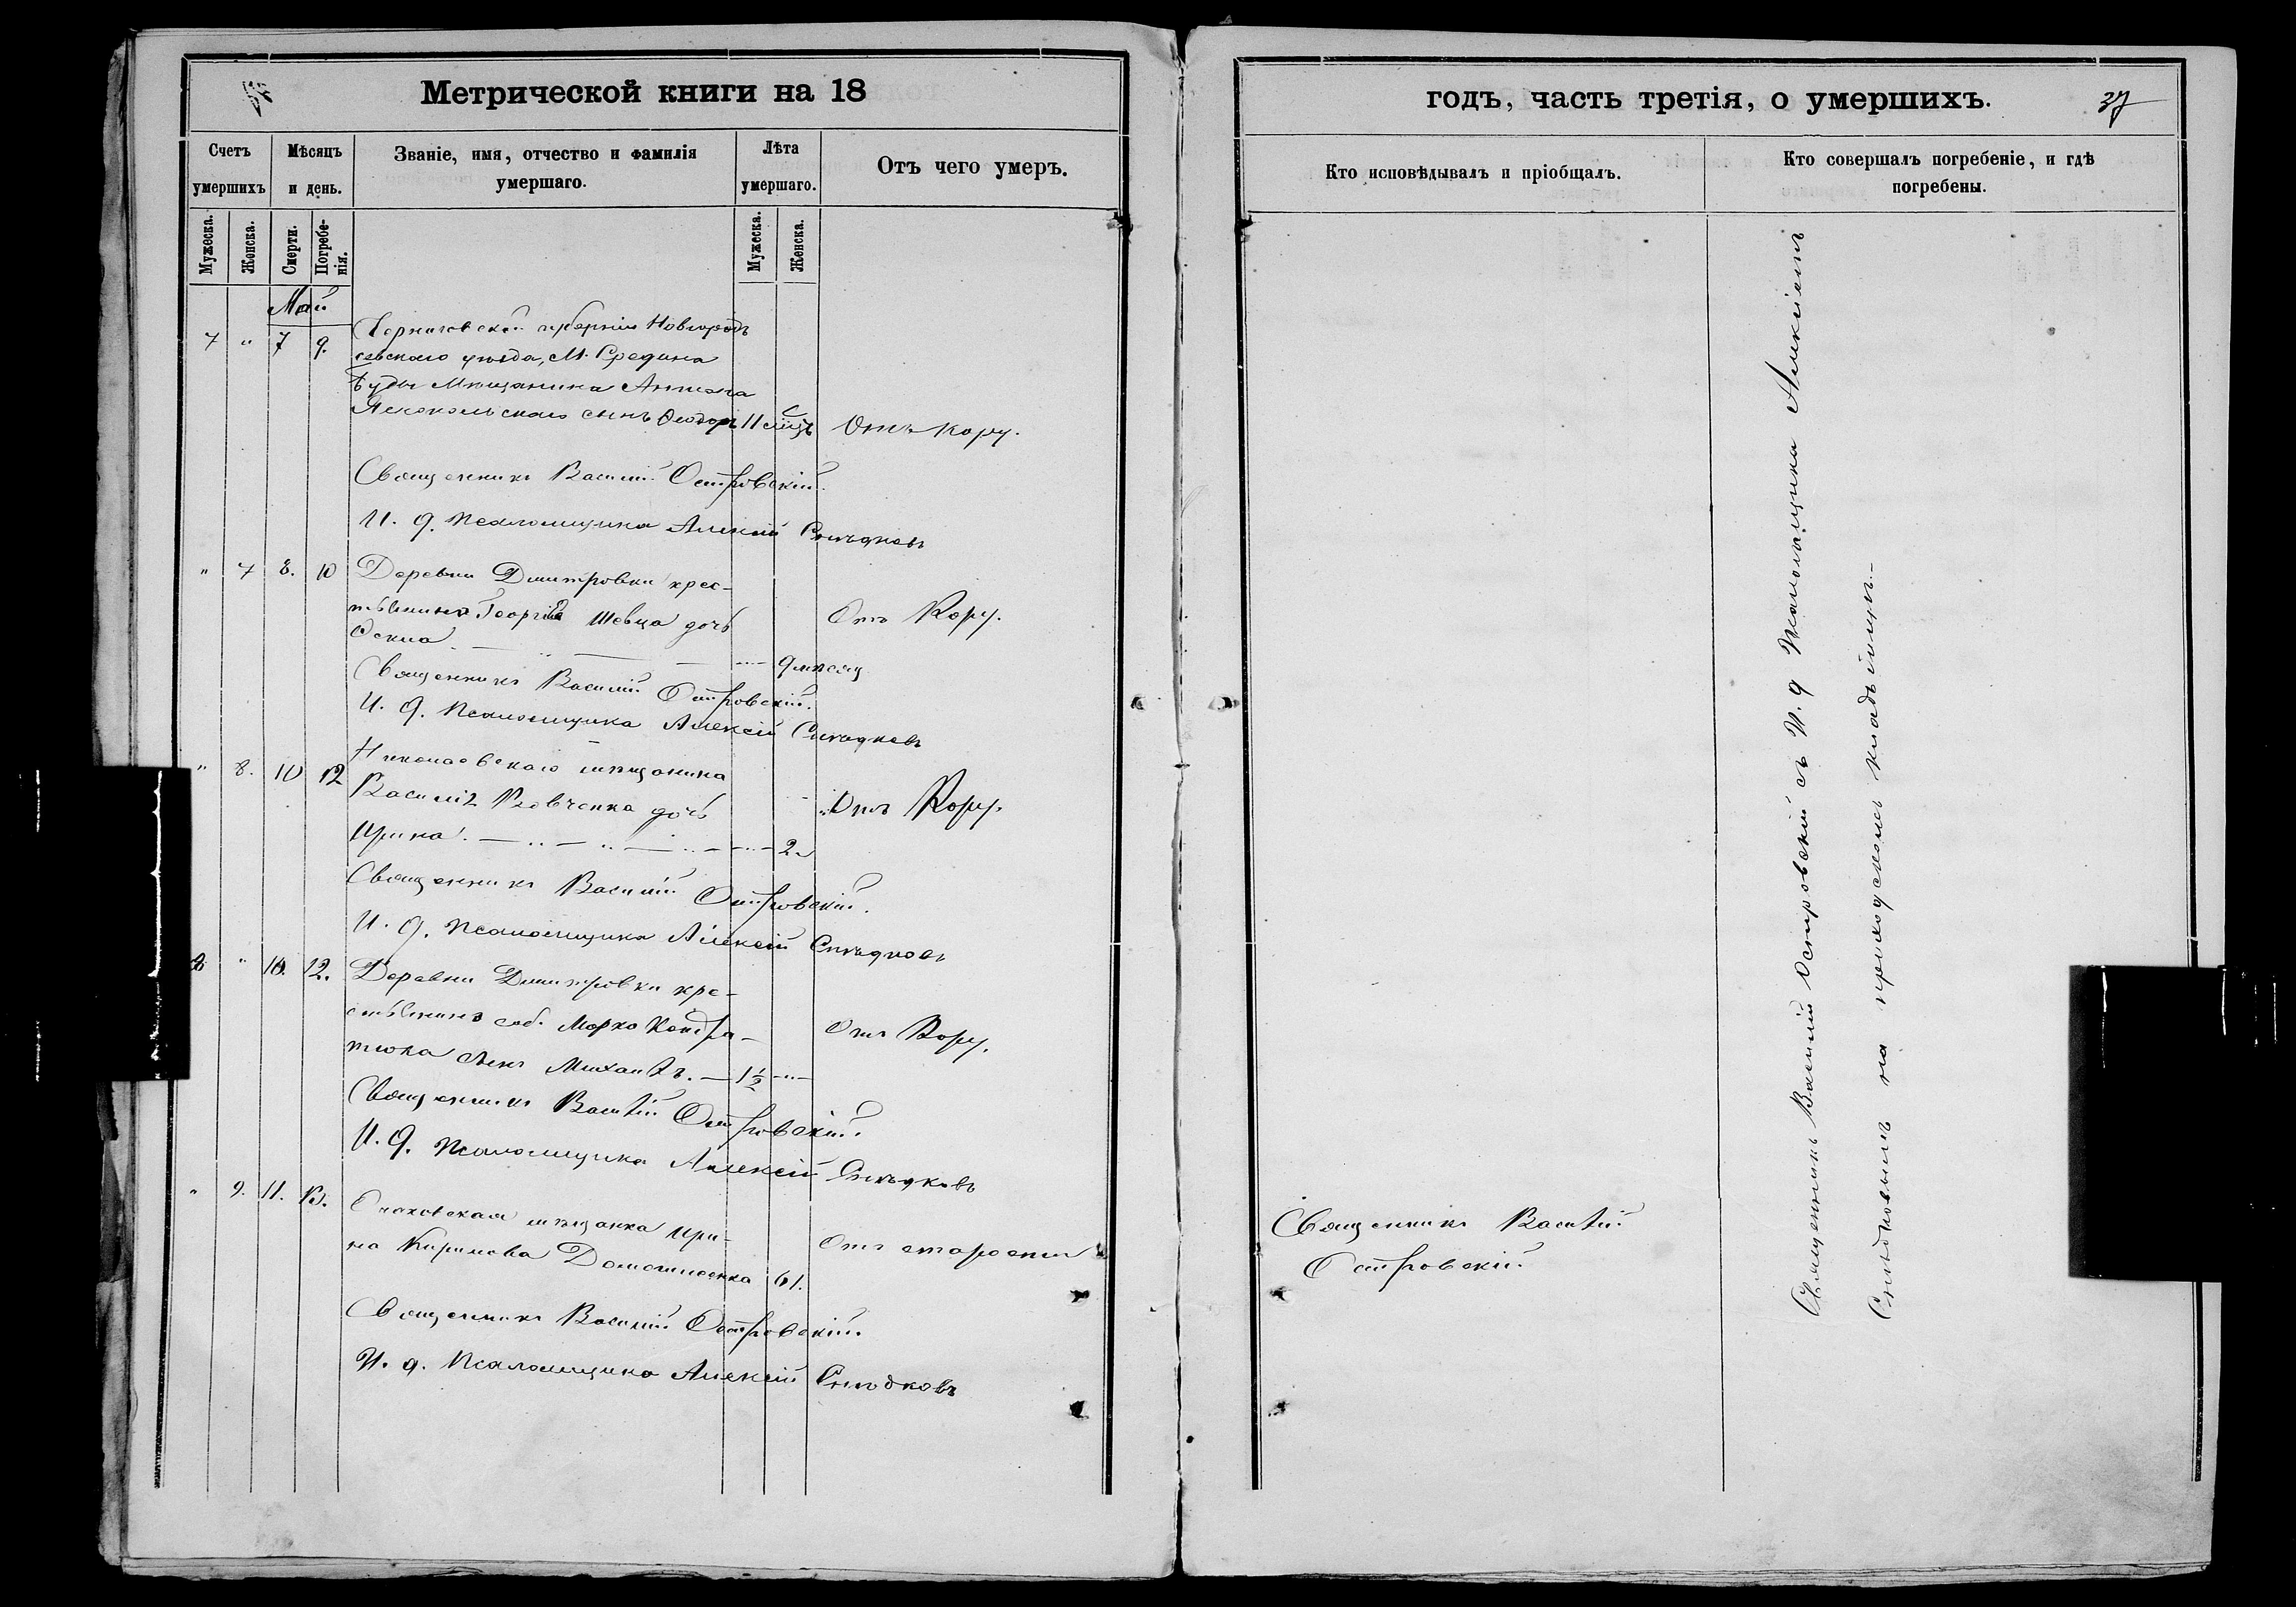 Метрической книги на 18
Счетъ умершихъ
Мѣсяцъ и день.
Званіе, имя, отчество и фамилія умершаго.
Лѣта умершаго.
Отъ чего умеръ.
Мужеска.
Женска.
Смерти.
Погребенія.
Мужеска.
Женска.
Май
7 " 7 9.
Черниговской губерніи Новгородъ
сѣвскаго уѣзда, М. Середина
Буды Мѣщанина
сынъ Ѳеодоръ 11 Отъ кору.
Священникъ Василій Островскій.
И. д. Псаломщика Алексій Слѣдковъ
" 7 8. 10 Деревни Дмитровки крес-
тьянина Георгія Шевца дочь Отъ Кору.
9 мѣсяц
Священникъ Василій Островскій.
И. д. Псаломщика Алексій Слѣдковъ
" 8. 10 12 Николаевскаго мѣщанина
Василія дочь Отъ Кору.
Ирина. 2
Священникъ Василій Островскій.
И. д. Псаломщика Алексій Слѣдковъ
8 " 10. 12. Деревни Дмитровки кре-
стьянина соб. Марко Кондра- Отъ Кору.
тюка сынъ Михаилъ. 1½
Священникъ Василій Островскій.
И. д. Псаломщика Алексій Слѣдковъ
" 9. 11. 13. Очаковская мѣщанка Ири-
на Кирилова 61. Отъ старости
Священникъ Василій Островскій.
И. д. Псаломщика Алексій Слѣдковъ
годъ, часть третія, о умершихъ.
37
Кто исповѣдывалъ и пріобщалъ.
Кто совершалъ погребеніе, и гдѣ погребены.
Священникъ Василій
Островскій.
Священникъ Василій Островскій съ И. д Псаломщика Алексіемъ
Слѣдковымъ на приходскомъ кладбищѣ.